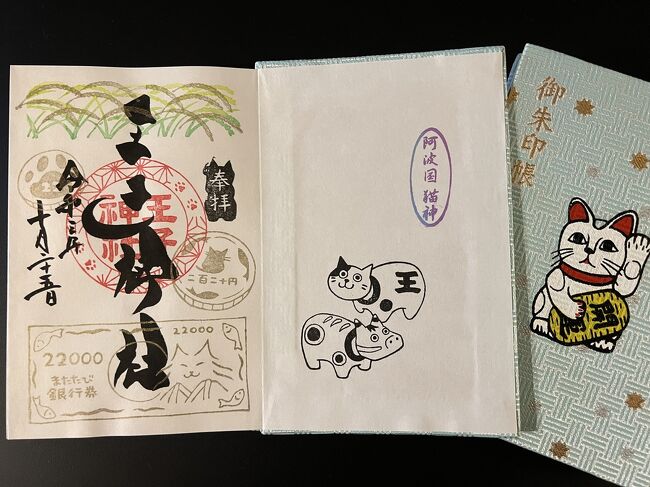 奉拝
王子神社
王子
神社
令和三年
十月二十五日
王
二百二十円
22000
22000
またたび
銀行券
阿波国 猫神
王
御朱印帳
開運